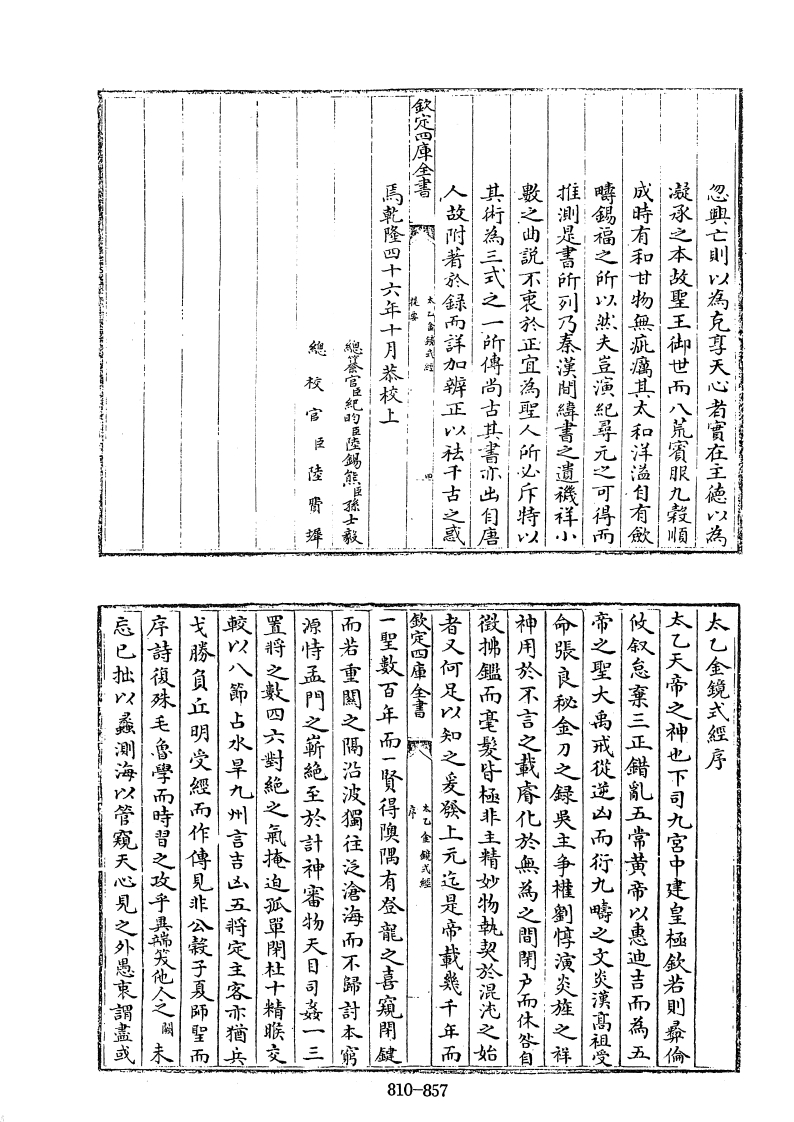 忽興亡則以為克享天心者實在主德以為
凝承之本故聖王御世而八荒賓服九穀順
成時有和甘物無疵癘其太和洋溢自有斂
疇錫福之所以然夫豈演紀尋元之可得而
推測是書所列乃秦漢間緯書之遺禨祥小
數之曲說不衷於正宜為聖人所必斥特以
其術為三式之一所傳尚古其書亦出自唐
人故附著於錄而詳加辨正以祛千古之惑
欽定四庫全書
太乙金鏡式經
提要
四
焉乾隆四十六年十月恭校上
總纂官臣紀昀臣陸錫熊臣孫士毅
總校官臣陸費墀
太乙金鏡式經序
太乙天帝之神也下司九宮中建皇極欽若則彛倫
攸叙怠棄三正錯亂五常黃帝以惠迪吉而為五
帝之聖大禹戒從逆凶而衍九疇之文炎漢高祖受
命張良秘金刀之録吳主爭權劉惇演炎旌之祥
神用於不言之載睿化於無為之間閉户而休咎自
徴拂鑑而毫髮皆極非主精妙物執契於混沌之始
者又何足以知之爰發上元迄是帝載幾千年而
欽定四庫全書
太乙金鏡式經
序
一聖數百年而一賢得隩隅有登龍之喜窺閉鍵
而若重關之隔沿波獨往泛滄海而不歸討本窮
源恃孟門之嶄絶至於計神審物天目司姦一三
置將之數四六對絶之氣掩迫孤單閉杜十精睺交
較以八節占水旱九州言吉凶五將定主客亦猶兵
戈勝負丘明受經而作傳見非公糓子夏師聖而
序詩復殊毛魯學而時習之攻乎異端笅他人之闕未
忘已拙以蠡測海以管窺天心見之外愚衷謂盡或
810-857